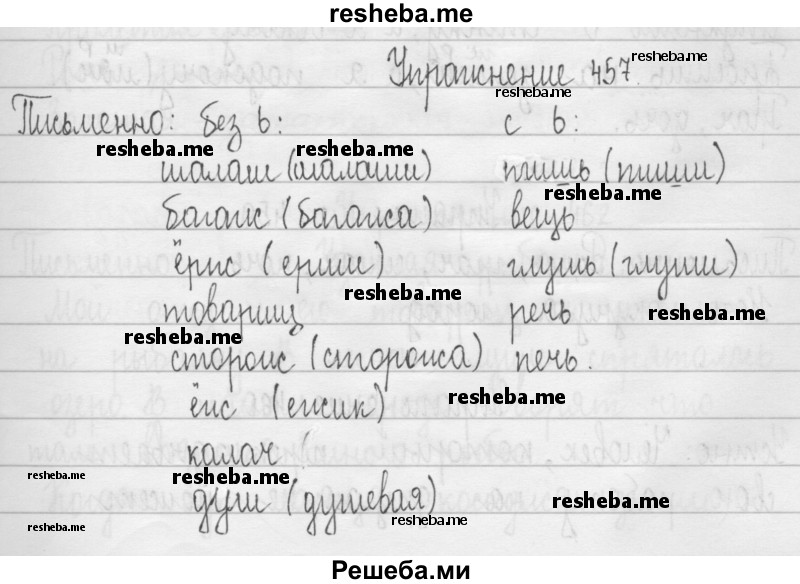 resheba.me
Упражнение 457.
resheba.me
resheba.me
Письменно: без ь: с ь:
resheba.me resheba.me
шалаш (шалаши) мышь (мыши)
resheba.me
багаж (багажа) вещь
ёрш (ерши) глушь (глуши)
resheba.me
товарищ речь resheba.me
resheba.me
сторож (сторожа) печь.
ёж (ежик) resheba.me
калач
resheba.me resheba.me
душ (душевая) resheba.me
resheba.me resheba.me
Решеба.ми